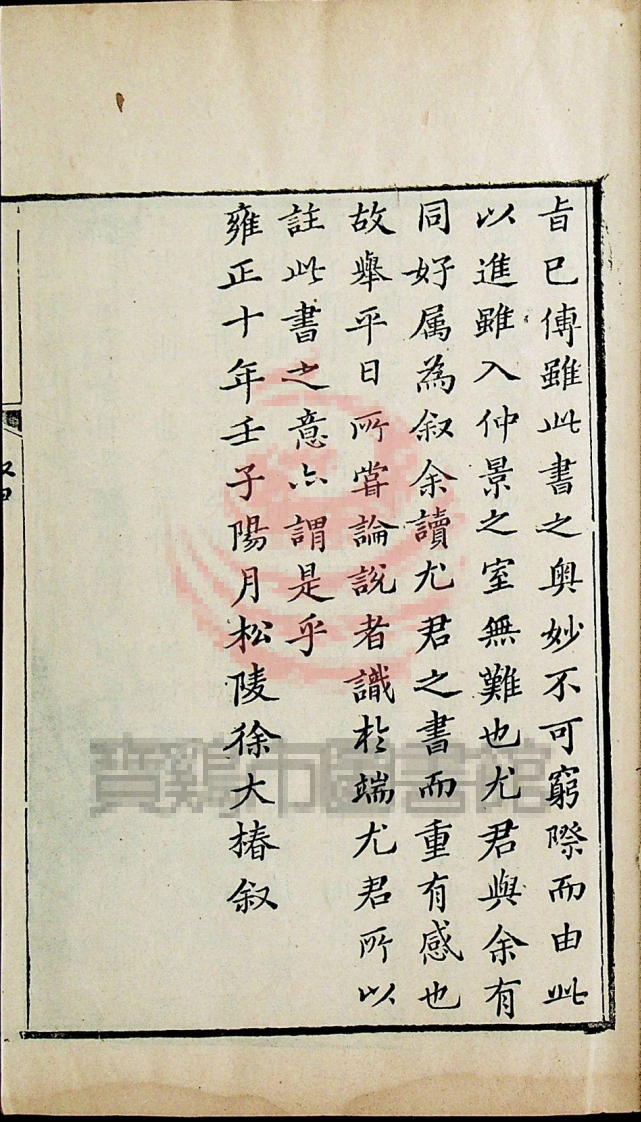 旨已傳雖此書之奥妙不可窮際而由此
以進雖入仲景之室無難也尤君與余有
同好属為叙余讀尤君之書而重有感也
故舉平日所嘗論說者識於端尤君所以
註此書之意亦謂是乎
雍正十年壬子陽月松陵徐大椿叙
寶鷄市圖書館